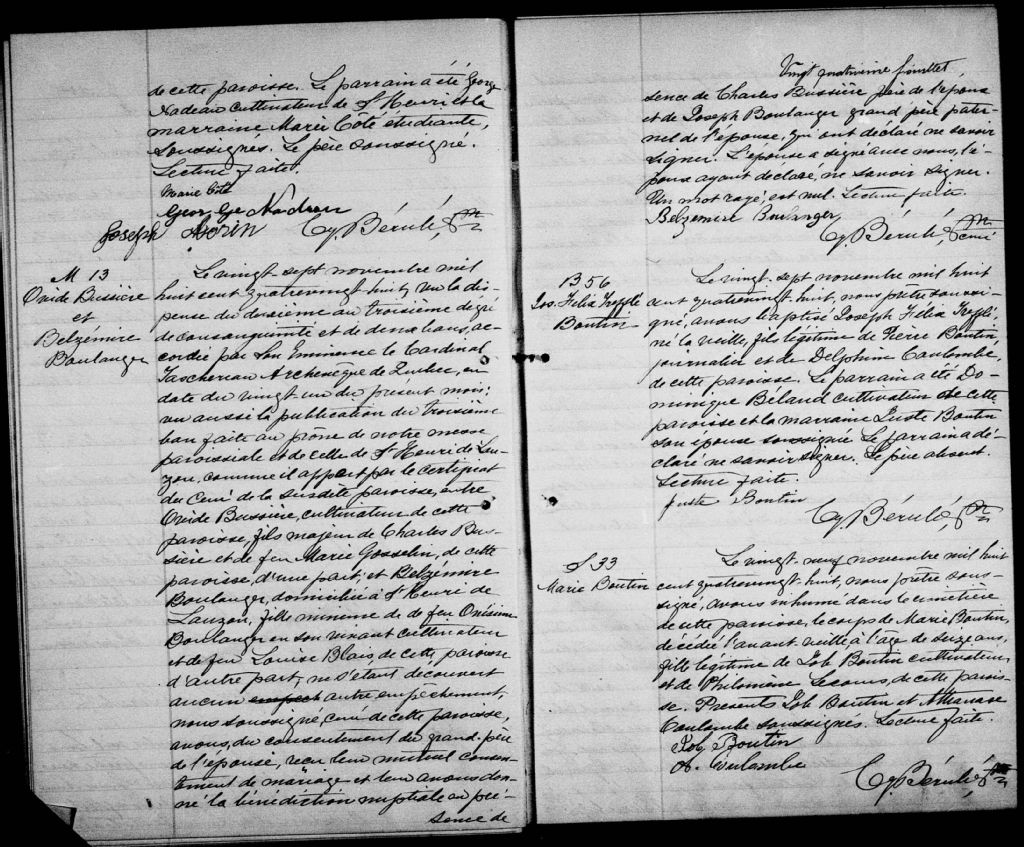 de cette paroisse. Le parrain a été George
Nadeau cultivateur de St Henri et la
marraine Marie Côté étudiante,
soussignés. Le père soussigné.
Lecture faite.
Marie Coté
George Nadeau
Joseph Morin Cy. Bérubé, Ptre
M 13
Ovide Bussière
et
Belzémire
Boulanger
Le vingt-sept novembre mil
huit cent quatrevingt-huit, vu la dis-
pense du deuxième au troisième dégré
de consanguinité et de deux bans, ac-
cordée par Son Eminence le Cardinal
Taschereau Archevêque de Québec, en
date du vingt-un du présent mois;
vu aussi la publication du troisième
ban faite au prône de notre messe
paroissiale et de celle de St Henri de Lau-
zon, comme il appert par le certificat
du Curé de la susdite paroisse, entre
Ovide Bussière, cultivateur de cette
paroisse, fils majeur de Charles Bus-
sière et de feu Marie Gosselin, de cette
paroisse, d'une part; et Belzémire
Boulanger, domiciliée à St Henri de
Lauzon, fille mineure de feu Onésime
Boulanger en son vivant cultivateur
et de feu Louise Blais, de cette paroisse
d'autre part, ne s'étant découvert
aucun empech autre empêchement,
nous soussigné, curé de cette paroisse,
avons, du consentement du grand-père
de l'épouse, reçu leur mutuel consen-
tement de mariage et leur avons don-
né la bénédiction nuptiale en pré-
sence de
Vingt neuvième feuillet
sence de Charles Bussière père de l'époux
et de Joseph Boulanger grand père pater-
nel de l'épouse, qui ont déclaré ne savoir
signer. L'épouse a signé avec nous, l'é-
poux ayant déclaré, ne savoir signer.
Un mot rayé, est nul. Lecture faite.
Belzemire Boulanger
Cy. Bérubé, Ptre
curé
B 56
Jos. Félix Trefflé
Boutin
Le vingt-sept novembre mil huit
cent quatrevingt-huit, nous prêtre soussi-
gné, avons baptisé Joseph Félix Trefflé,
né la veille, fils légitime de Pierre Boutin,
journalier et de Delphine Coulombe,
de cette paroisse. Le parrain a été Do-
minique Béland cultivateur de cette
paroisse et la marraine Juste Boutin
son épouse soussignée Le parrain a dé-
claré ne savoir signer. Le père absent.
Lecture faite.
Juste Boutin
Cy. Bérubé, Ptre
S 33
Marie Boutin
Le vingt-neuf novembre mil huit
cent quatrevingt-huit, nous prêtre sous-
signé, avons inhumé dans le cimetière
de cette paroisse, le corps de Marie Boutin,
décédée l'avant-veille à l'age de seize ans,
fille légitime de Job Boutin cultivateur,
et de Philomène Lecours, de cette parois-
se. Présents Job Boutin et Athanase
Coulombe soussignés. Lecture faite.
Job Boutin
A. Coulombe
Cy. Bérubé, Ptre